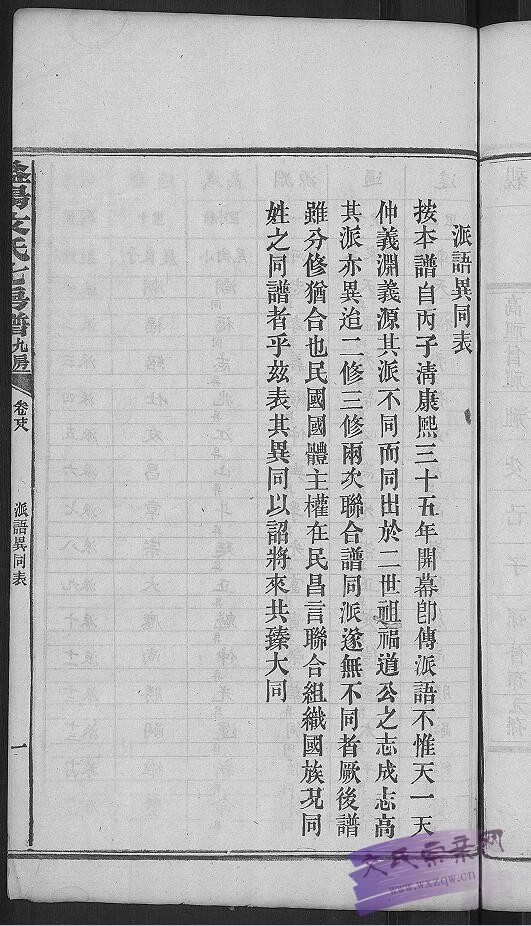 派語異同表
按本譜自丙子淸康熙三十五年開幕卽傳派語不惟天一天
仲義淵義源其派不同而同出於二世祖福道公之志成志高
其派亦異迨二修三修兩次聯合譜同派遂無不同者厥後譜
雖分修猶合也民國國體主權在民昌言聯合組織國族况同
姓之同譜者乎兹表其異同以詔將來共臻大同
文氏七房譜九房
派語異同表
一
文氏索录网
www.wxzqw.cn